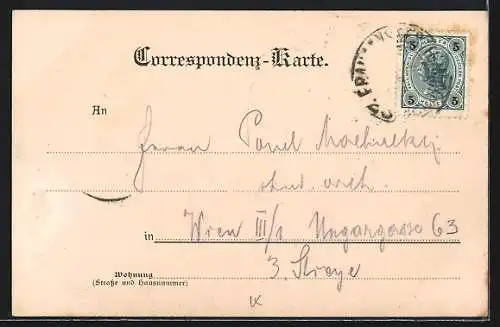 Correspondenz-Karte.
5 5
5 5
An
Herrn Paul
stud. arch.
in Wien III/1 Ungargasse 63
3. Stiege
Wohnung
(Straße und Hausnummer)